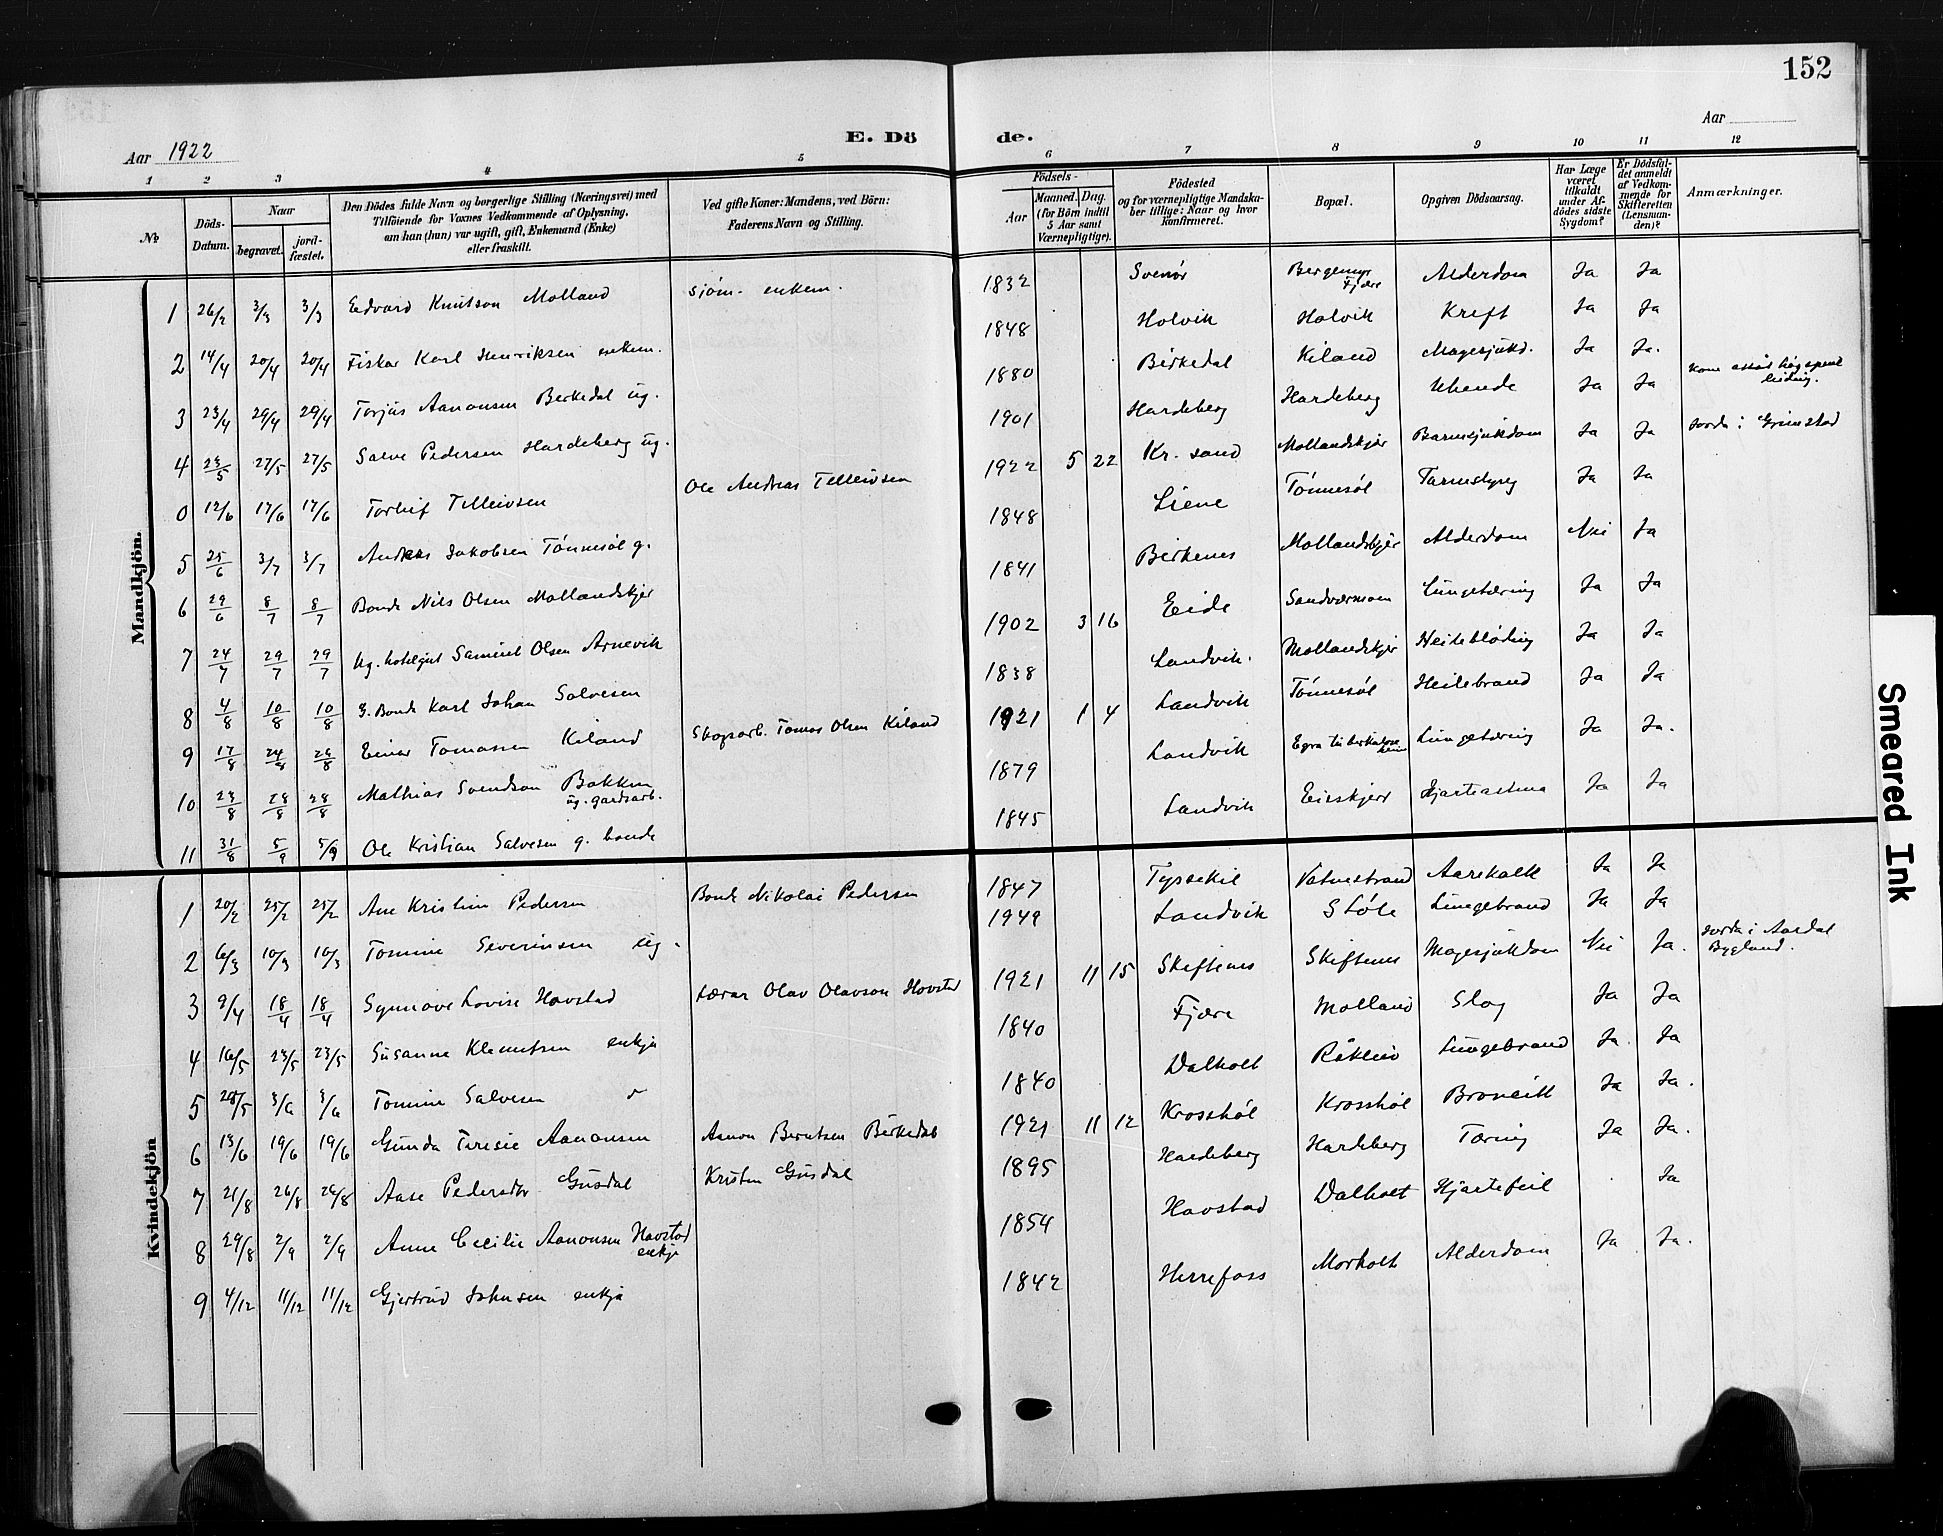 152
Aar 1922
E. Dö de.
Aar
1 2 3 4 5 6 7 8 9 10 11 12
№
Döds-Datum.
Naar
begravet.
jord-fæstet.
Den Dödes fulde Navn og borgerlige Stilling (Næringsvei) med
Tilföiende for Voxnes Vedkommende af Oplysning,
om han (hun) var ugift, gift, Enkemand (Enke)
eller fraskilt.
Ved gifte Koner: Mandens, ved Börn:
Faderens Navn og Stilling.
Födsels-
Aar
Maaned. Dag.
(for Börn indtil
5 Aar samt
Værnepligtige).
Födested
og for værnepligtige Mandska-
ber tillige: Naar og hvor
konfirmeret.
Bopæl.
Opgiven Dödsaarsag.
Har Læge
været
tilkaldt
under Af-
dödes sidste
Sygdom?
Er Dödsfal-
det anmeldt
af Vedkom-
mende for
Skifteretten
(Lensman-
den)?
Anmærkninger.
Mandkjön.
1 26/2 3/3 3/3 Edvard Knutson Molland sjöm. enkem. 1832 Bergemyr Fjære Alderdom Ja Ja
2 14/4 20/4 20/4 Fiskar Karl Henriksen enkem. 1848 Holvik Holvik Kreft Ja Ja
3 23/4 29/4 29/4 Torjus Aanonsen Berkedal ug. 1880 Birkedal Kiland Magesjukd. Ja Ja.
4 23/5 27/5 27/5 Salve Pedersen Hardeberg ug. 1901 Hardeberg Hardeberg Ja Ja
0 12/6 17/6 17/6 Torleif Tellevsen Ole Andreas Tellevsen 1922 5 22 Kr. sand Mollandskjær Barnesjukdom Ja Ja jorda i Grimstad
5 25/6 3/7 3/7 Andreas Jakobsen Tønnesøl g. 1848 Liene Tønnesøl Ja Ja
6 29/6 8/7 8/7 Bonde Nils Olsen Mollandskjær 1841 Birkenes Mollandskjær Alderdom Nei Ja
7 24/7 29/7 29/7 Ug. Samuel Olsen Arnevik 1902 3 16 Eide Lungetæring Ja Ja
8 4/8 10/8 10/8 G. Bonde Karl Johan Salvesen 1838 Landvik. Mollandskjær Heilebløding Ja Ja
9 17/8 24/8 24/8 Einar Tomassen Kiland Skogsarb. Tomas Olsen Kiland 1921 1 4 Landvik Tønnesøl Heilebrand Ja Ja
10 23/8 28/8 28/8 Mathias Svendson Bakken ug. gardsarb. 1879 Landvik Lungetæring Ja Ja.
11 31/8 5/9 5/9 Ole Kristian Salvesen g. bonde 1845 Landvik Eieskjær Hjarteastma Ja Ja
Kvindekjön
1 20/2 25/2 25/2 Ane Kristine Pedersen Bonde Nikolai Pedersen 1847 Vatnestrand Aarekalk Ja Ja
2 6/3 10/3 10/3 Tomine Severinsen ug. 1849 Landvik Støle Lungebrand Ja Ja
3 9/4 18/4 18/4 Synnøve Lovise Hovstad Lærar Olav Olavson Hovstad 1921 11 15 Skiftenes Skiftenes Magesjukdom Nei Ja. jorda i Aardal Bygland.
4 16/5 23/5 23/5 Susanne Klemetsen enkje 1840 Fjære Molland Slag Ja Ja
5 28/5 3/6 3/6 Tomine Salvesen 1840 Dalholt Lungebrand Ja Ja
6 13/6 19/6 19/6 Gunda Teresie Aanonsen Aanon Berntsen Birkedal 1921 11 12 Krosshøl Krosshøl Ja Ja.
7 21/8 26/8 26/8 Aase Pedersdtr Gusdal Kristen Gusdal 1895 Hardeberg Hardeberg Tæring Ja Ja.
8 29/8 2/9 2/9 Anne Cecilie Aanonsen Hovstad enkje 1854 Hovstad Dalholt Hjartefeil Ja
9 4/12 11/12 11/12 Gjertrud Johnsen enkje 1842 Herrefoss Morholt Alderdom Ja Ja.
Smeared Ink